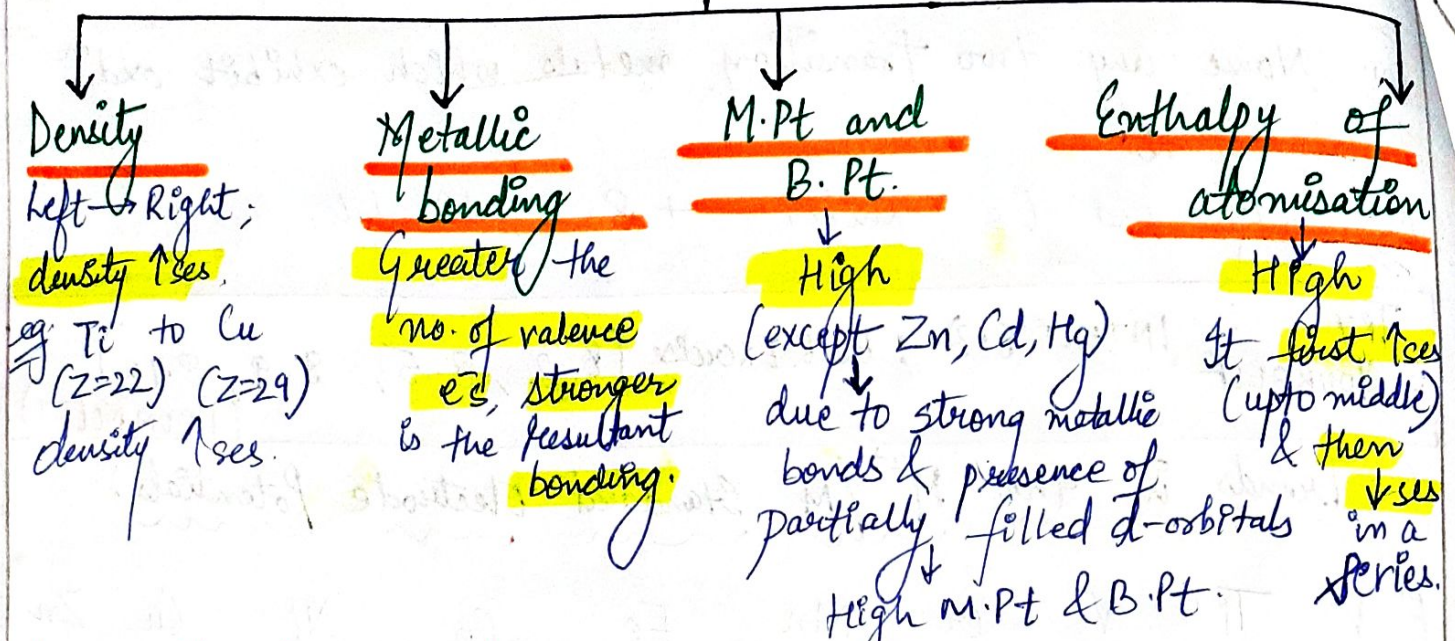 Density
Left → Right;
density ↑ses.
eg Ti to Cu
(Z=22) (Z=29)
density ↑ses.
Metallic
bonding
Greater the
no. of valence
e⁻s, stronger
is the resultant
bonding.
M.Pt and
B. Pt.
↓
High
(except Zn, Cd, Hg)
↓
due to strong metallic
bonds & presence of
partially filled d-orbitals
↓
High M.Pt & B.Pt.
Enthalpy of
atomisation
↓
High
It first ↑ses
(upto middle)
& then
↓ses
in a
series.